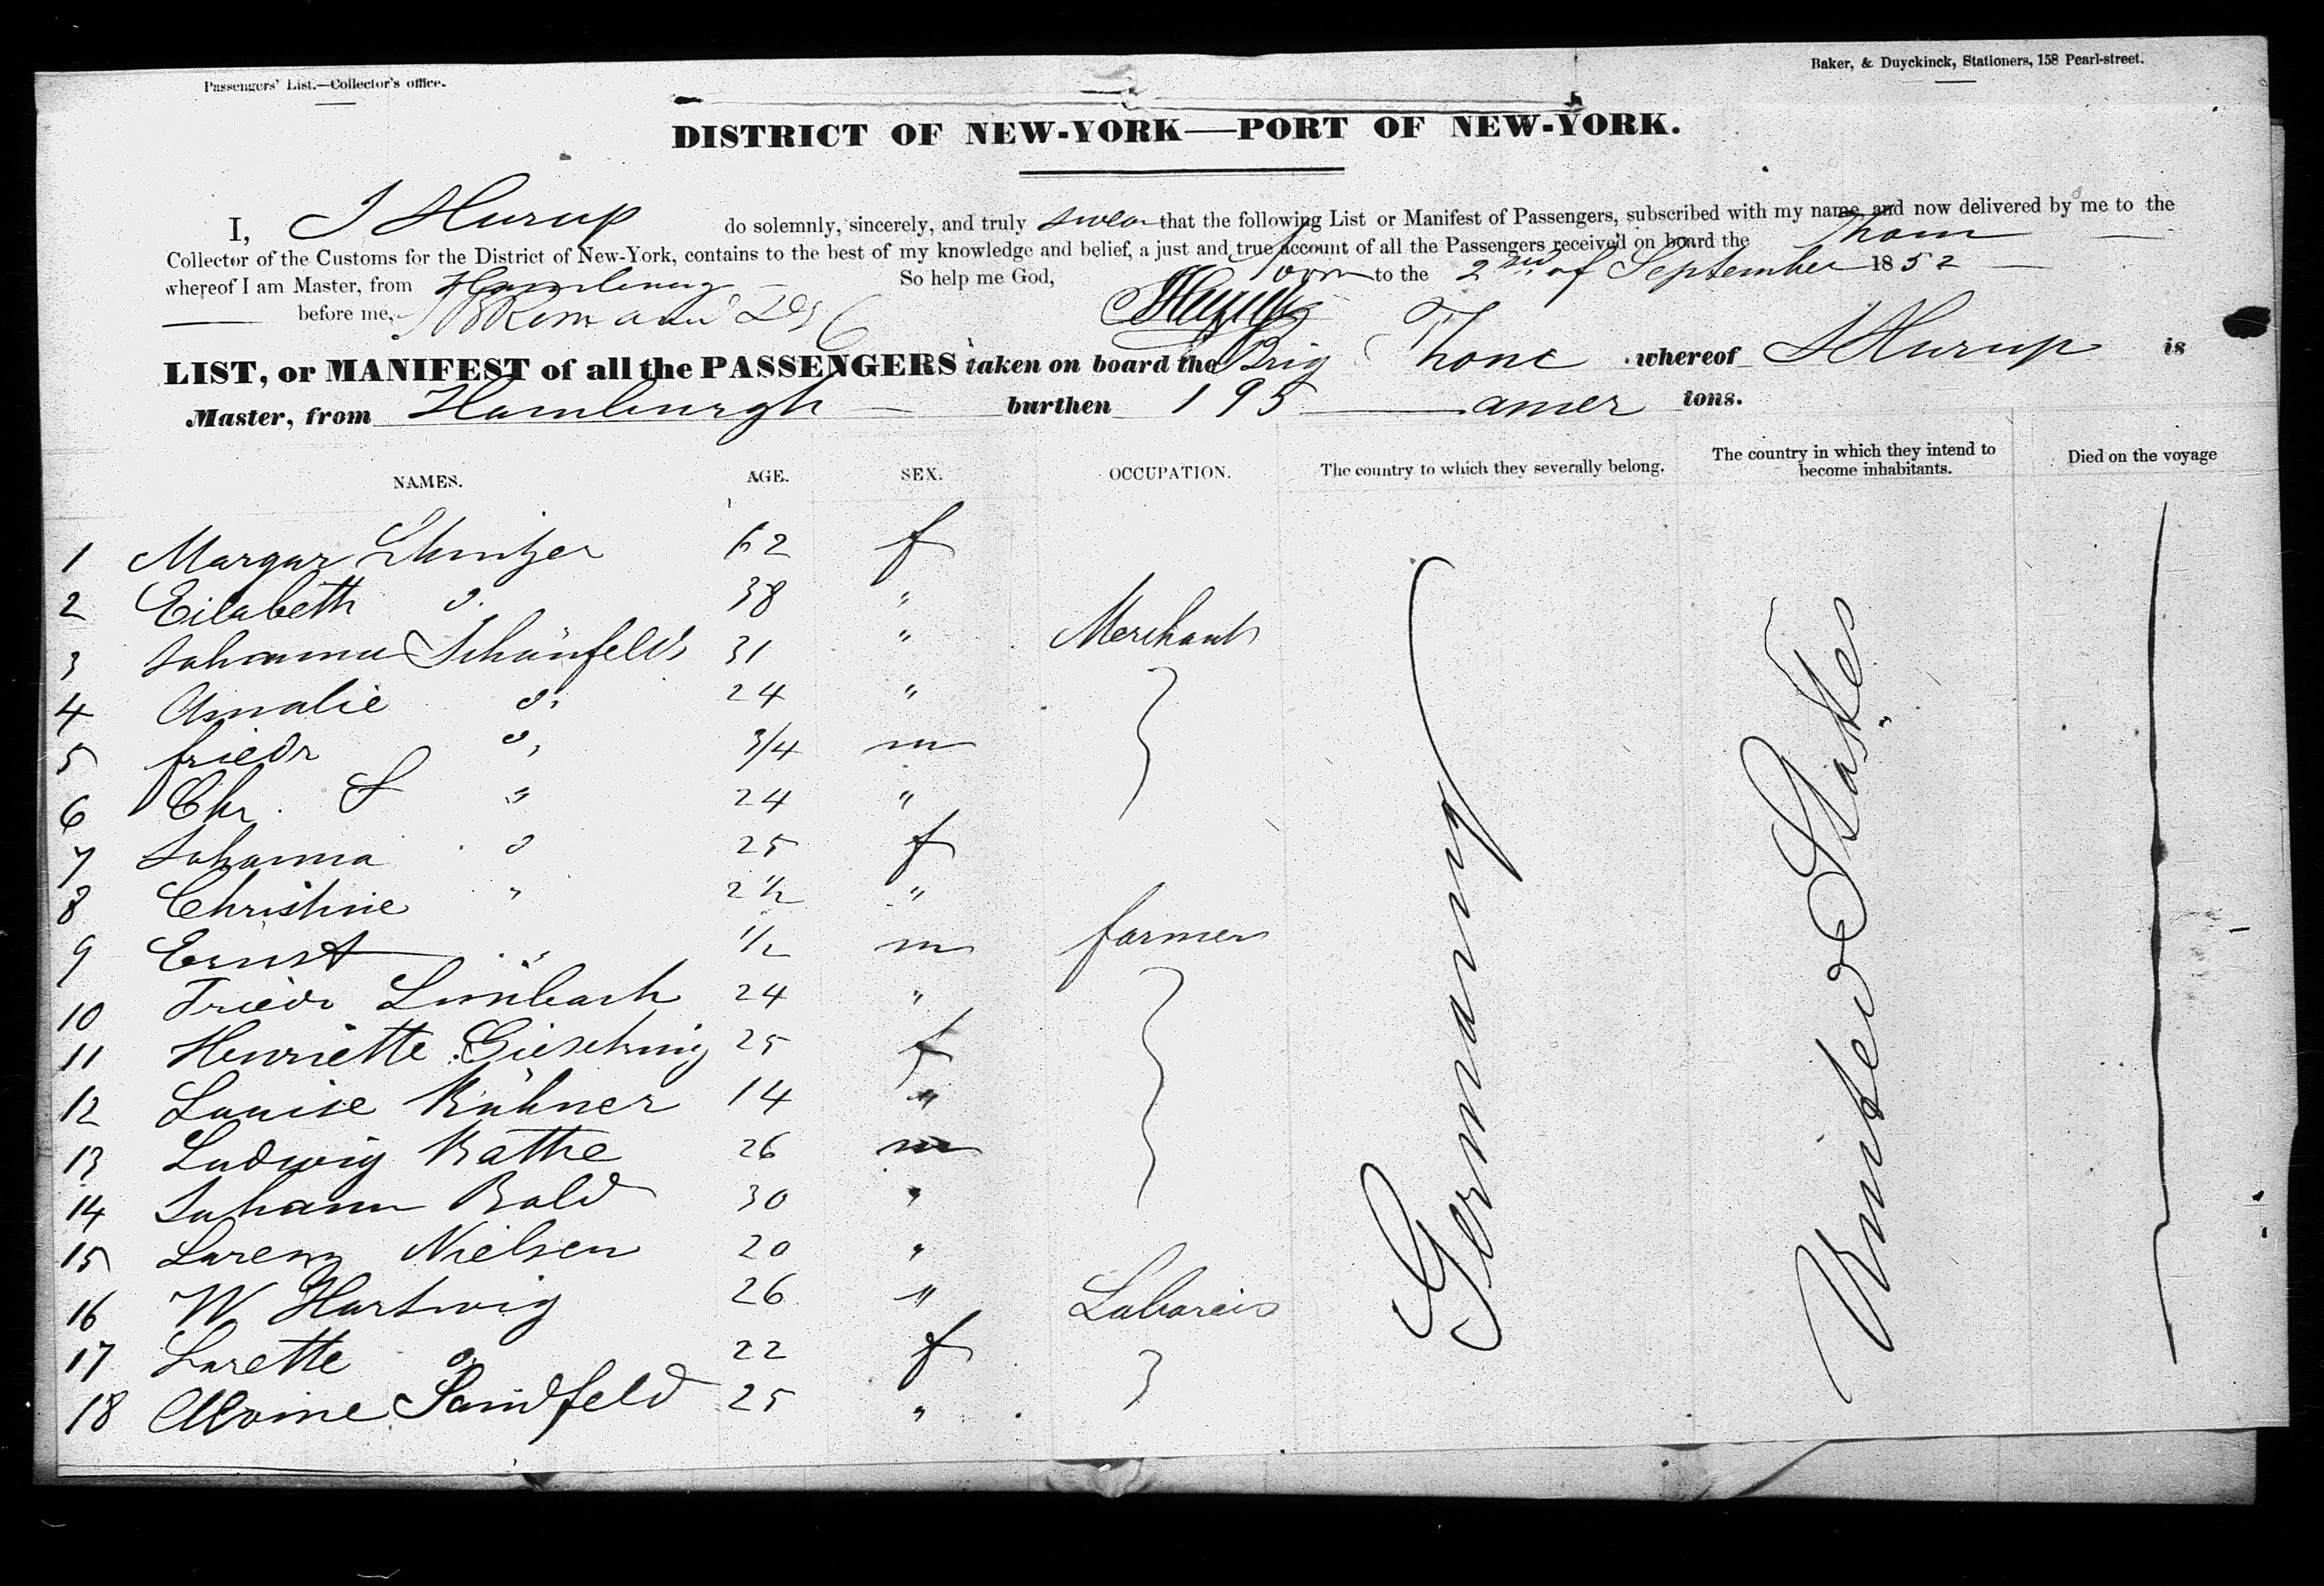 Passengers' List.—Collector's office.
Baker, & Duyckinck, Stationers, 158 Pearl-street.
DISTRICT OF NEW-YORK—PORT OF NEW-YORK.
I, J Hurup do solemnly, sincerely, and truly swear that the following List or Manifest of Passengers, subscribed with my name, and now delivered by me to the
Collector of the Customs for the District of New-York, contains to the best of my knowledge and belief, a just and true account of all the Passengers received on board the
whereof I am Master, from Hamburg So help me God, Sworn to the 2nd of September 1852
before me,
LIST, or MANIFEST of all the PASSENGERS taken on board the Brig whereof J Hurup is
Master, from Hamburgh burthen 195 amer tons.
NAMES. AGE. SEX. OCCUPATION. The country to which they severally belong. The country in which they intend to become inhabitants. Died on the voyage
1 Margar 62 f
2 Elisabeth d. 38 "
3 Schönfeld 31 " Merchant
4 Amalie d. 24 "
5 friedr d. 3/4 m
6 Chr. S " 24 "
7 Johanna d 25 f
8 Christine " 2 1/2 "
9 Ernst " 1/2 m farmer
10 Friedr 24 "
11 Henriette 25 f
12 Louise Kühner 14 "
13 Ludwig Kathe 26 m
14 Johann Bold 30 "
15 Lorenz Nielsen 20 "
16 W Hartwig 26 " Laborers
17 Lorette d. 22 f
18 Alvine Sandfeld 25 "
Germany
United States